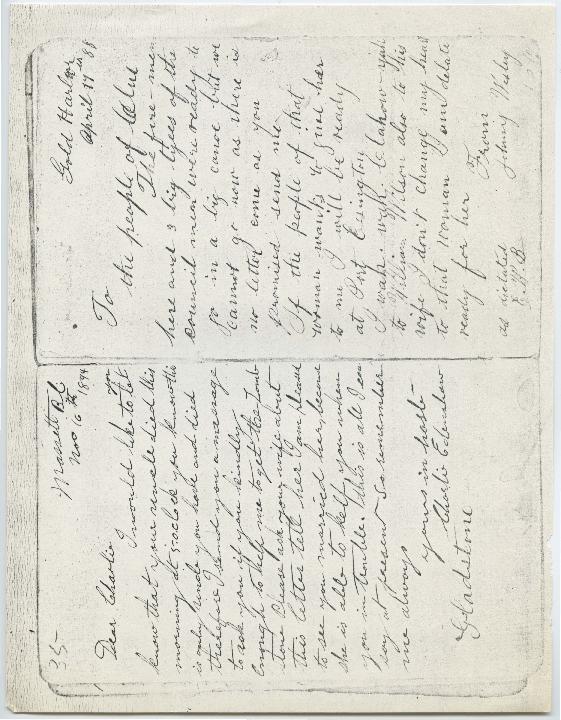 35
Massett B.C
Nov 16th 1894
Dear Charlie
I would like to let you
know that your uncle died this
morning at 5 oclock you know this
is only uncle you have and died
therefore I send you a message
to ask you if you kindly
enough to help me to get the tomb
stone Please ask your wife about
this letter tell her I am please
to see you married her, because
she is able to help you when
you in trouble. This is all I can
say at present So remember
me always
yours in haste
Charlie Edenshaw
Gladstone
Gold Harbor
April 17th 88
To the people of Clue
The fire-men
here and 3 big tyees of the
council men were ready to
go in a big canoe but we
cannot go now as there is
no letter come as you
promised send me
If the people of that
woman wants to give her
to me I will be ready
at Port Essington
I wah-wah le lahow-yah
to William Wilson also to his
wife I don't change my heart
to that woman I am delate
ready for her
From
Johnny Wesley
as dictated
E. W. B.